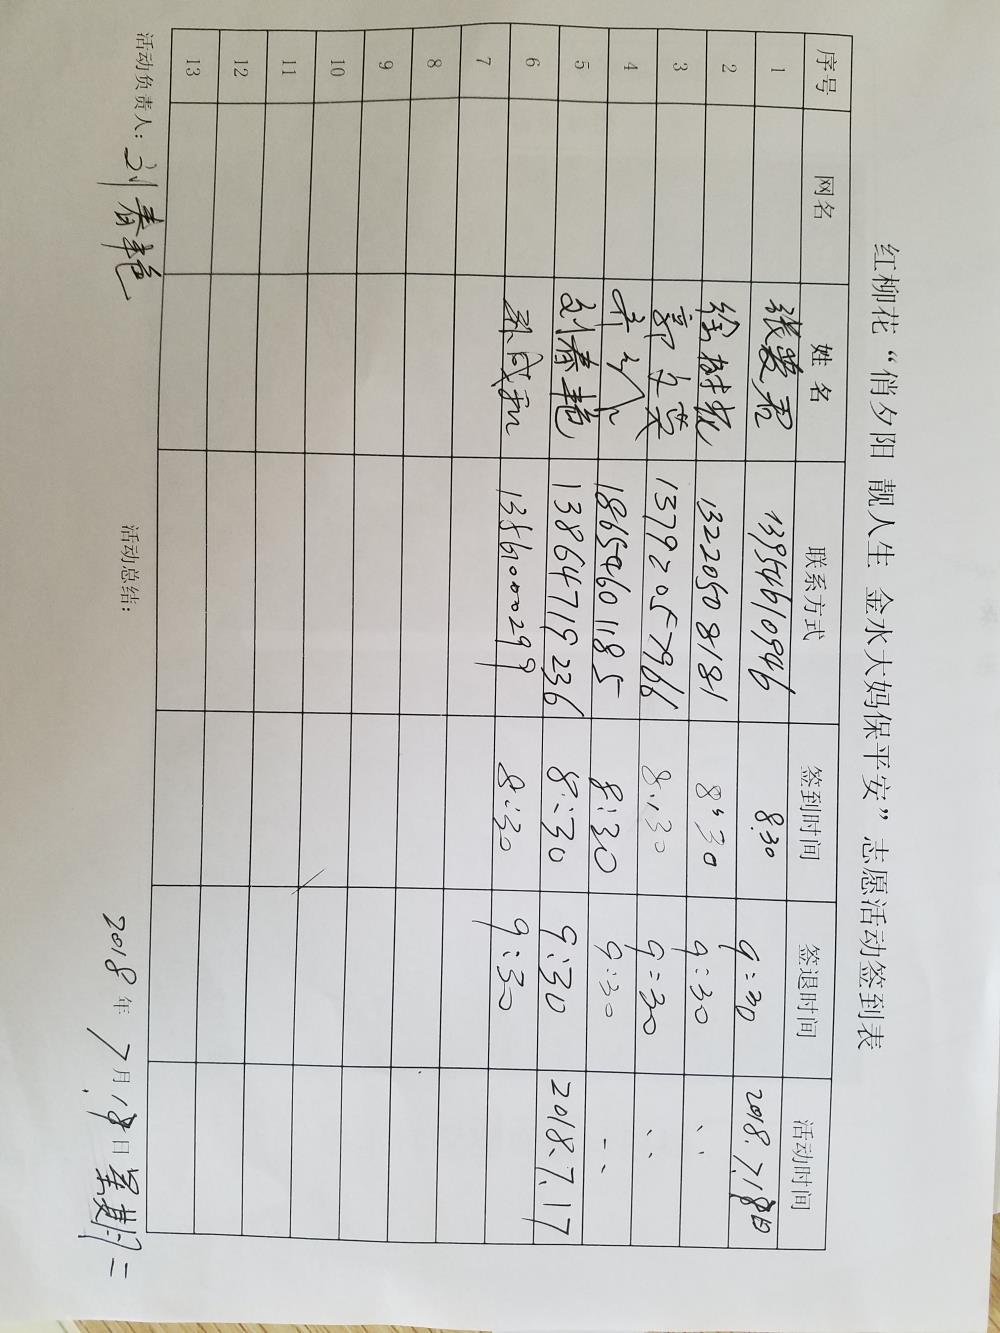 红柳花“俏夕阳 靓人生 金水大妈保平安”志愿活动签到表
序号 网名 姓名 联系方式 签到时间 签退时间 活动时间
1 张爱君 13954610946 8:30 9:30 2018.7.18日
2 徐树 13220508181 8:30 9:30 ..
3 郭 英 13792057966 8:30 9:30 ..
4 18654601185 8:30 9:30 ..
5 刘春艳 13864719236 8:30 9:30 2018.7.17
6 孙成和 13561000299 8:30 9:30
7
8
9
10
11
12
13
活动负责人：刘春艳 活动总结： 2018年7月18日 星期二